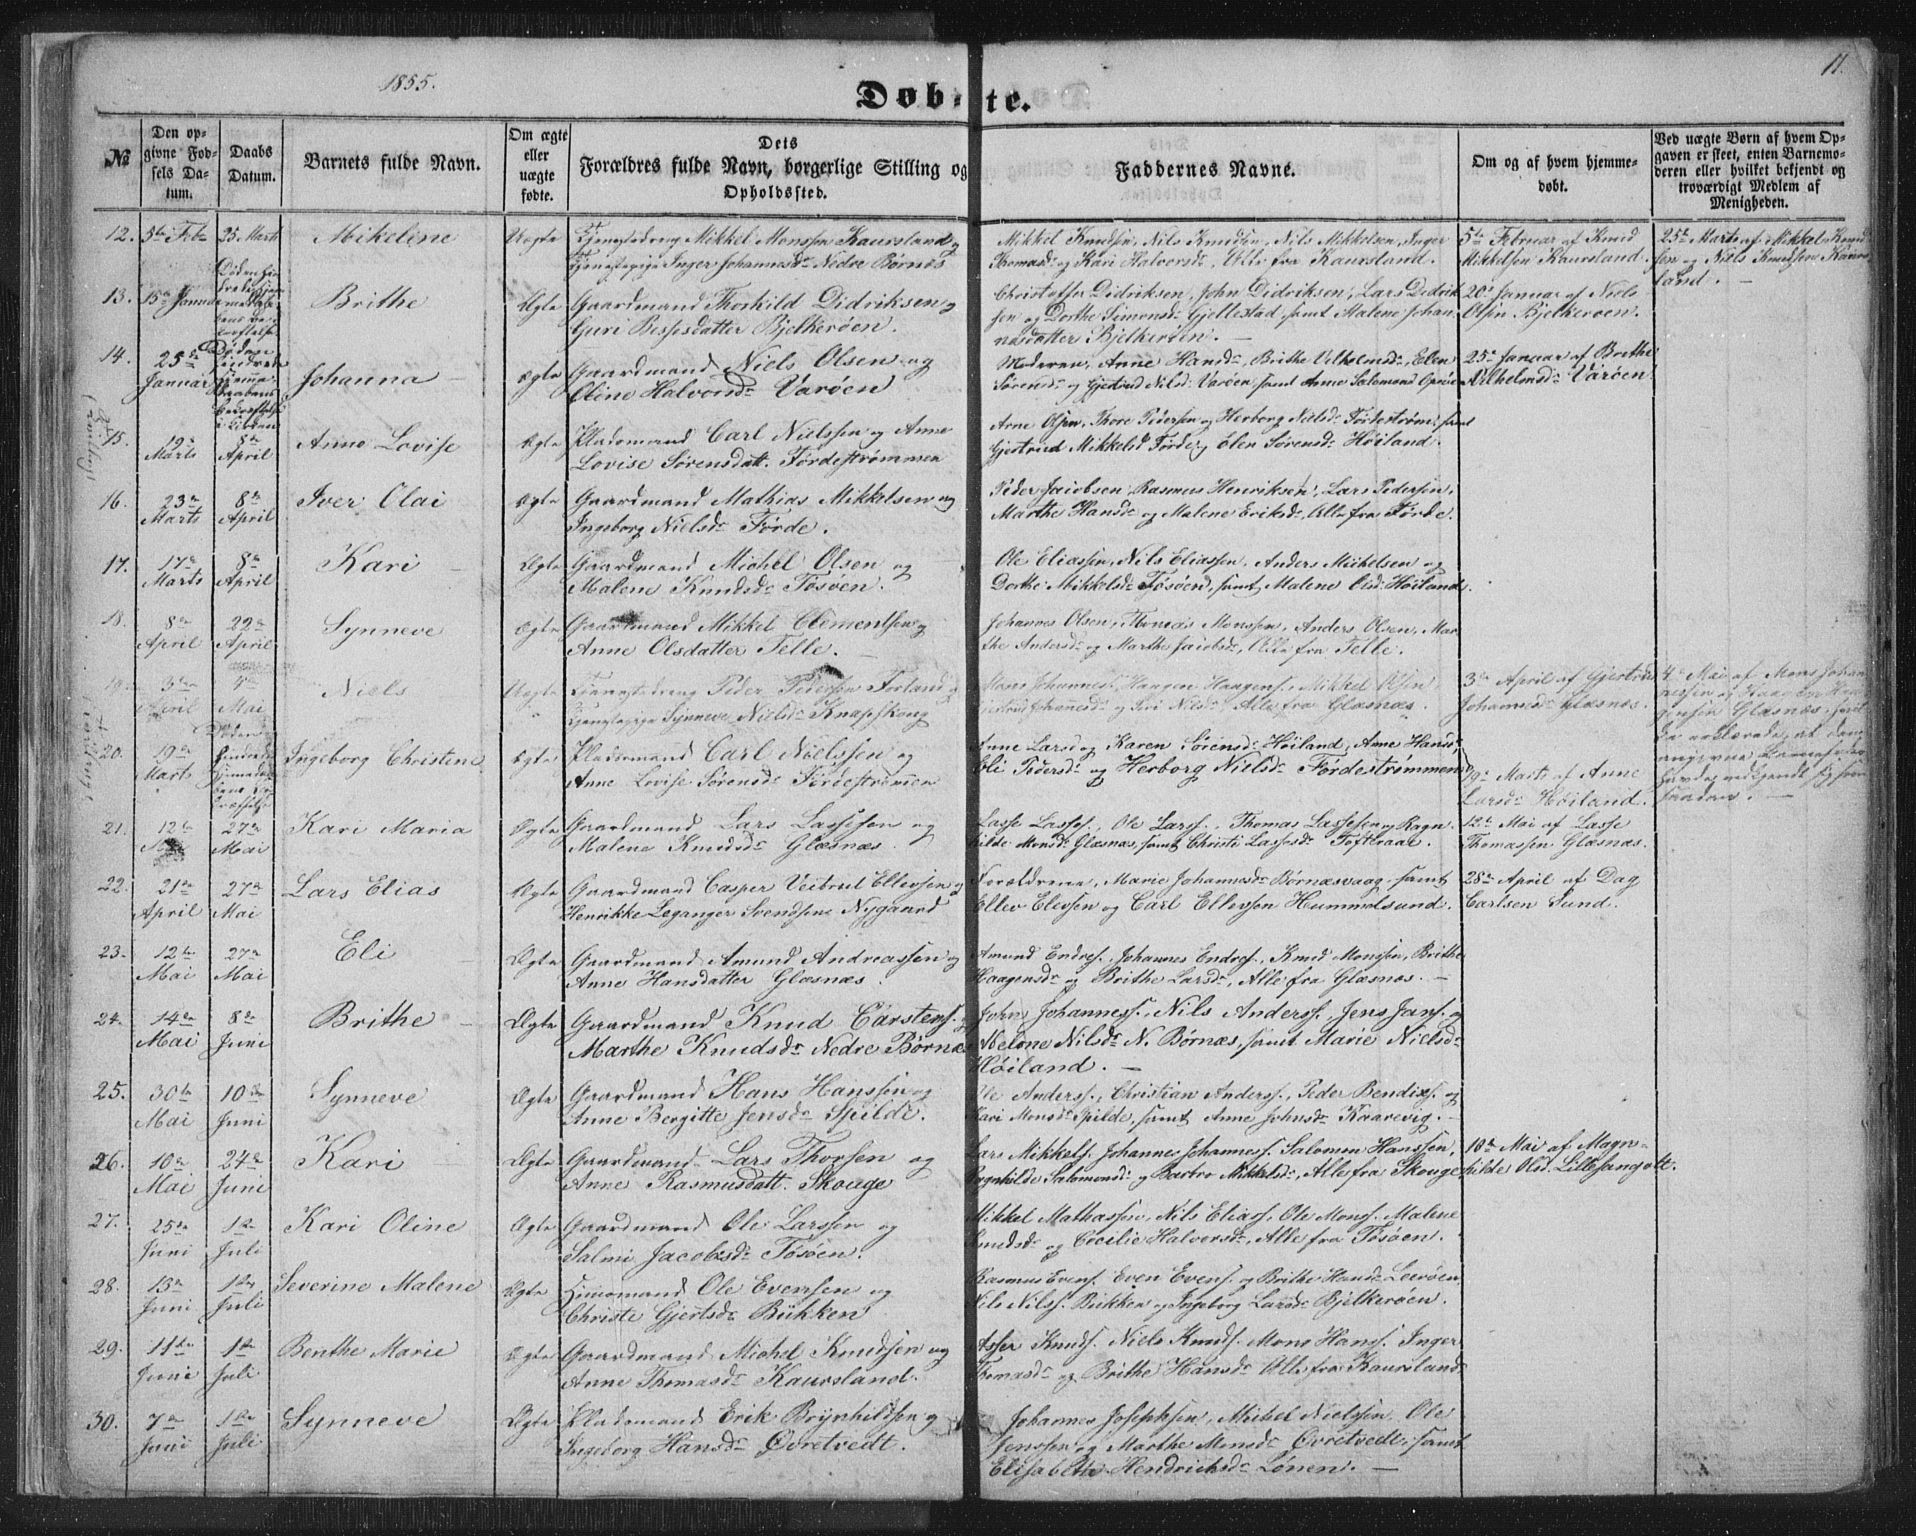 1855.
Døbte.
11.
№
Den opgivne Fødsels Datum.
Daabs Datum.
Barnets fulde Navn.
Om ægte eller uægte fødte.
Dets Forældres fulde Navn, borgerlige Stilling og Opholdssted.
Faddernes Navne.
Om og af hvem hjemmedøbt.
Ved uægte Børn af hvem Opgaven er skeet, enten Barnemoderen eller hvilket bekjendt og troværdigt Medlem af Menigheden.
12. 5te Feb 25 Marts Mikeline Uægte Tjenestedreng Mikkel Monssen Kaursland og
Tjenestepige Inger Johannesdr Nedre Børnes
Mikkel Knudsen, Nils Knudsen, Nils Mikkelsen, Inger
Thomasdr og Kari Halvorsdr, Alle fra Kaursland.
5te Februar af Knud
Mikkelsen Kaursland.
25de Marts af Mikkel Knud
sen og Niels Knudsen Kaurs
land.
13. 15de Januar Brithe Ægte Gaardmand Thorkild Didriksen og
Guri Bessesdatter Bjelkerøen.
Christoffer Didriksen, John Didriksen, Lars Didrik
sen og Dorthe Simonsdr Gjellestad samt Malene Johan
nesdatter Bjelkerøen.
20de Januar af Niels
Olsen Bjelkerøen.
14. 25de Januar Johanna Ægte Gaardmand Niels Olsen og
Oline Halvorsdr Varøen
Moderen, Anne Hansdr, Brithe Vilhelmsdr, Elen
Sørensdr og Gjertrud Nilsdr Varøen, samt Anne Salomonsd
25de Januar af Brithe
Vilhelmsdr Varøen
15. 12te Marts 8de April Anne Lovise Ægte Pladsmand Carl Nielssen og Anne
Lovise Sørensdatt. Førdestrømmen
Arne Olsen, Thore Pedersen og Herborg Nielsdr Førdestrøm: samt
Gjertrud Mikkelsd Førde og Elen Sørensdr Høiland.
16. 23de Marts 8de April Iver Olai Ægte Gaardmand Mathias Mikkelsen og
Ingeborg Nielsdr Førde.
Peder Jacobsen, Rasmus Henriksen, Lars Pedersen,
Marthe Hansdr og Malene Eriksdr, Alle fra Førde.
17. 17de Marts 8de April Kari Ægte Gaardmand Michel Olsen og
Malene Knudsdr Tøsøen.
Ole Eliassen, Nils Eliassen, Anders Michelsen og
Dorthe Mikkelsdr Tøsøen, samt Malene Olsd. Høiland.
18. 8de April 22de April Synneve Ægte Gaardmand Mikkel Clementsen og
Anne Olsdatter Telle.
Johannes Olsen, Thomas Monssen, Anders Olsen, Mar
the Andersdr og Marthe Jacobsdr, Alle fra Telle.
19. 3de April 4de Mai Niels Uægte Tjenestedreng Peder Pedersen Forland og
Tjenestepige Synneve Nielsdr Knapskoug
Mons Johannes., Haagen Haagens., Mikkel Olsen
Gjertrud Johannesdr og Siri Nilsdr, Alle fra Glæsnæs.
3de April af Gjertrud
Johannesdr Glæsnæs.
4de Mai af Mons Johan
nessen og Haagen Haa
gensen Glæsnæs,
da erklærede, at den
angivne Barnefader
havde vedkjendt sig som
saadan.
20. 19de Marts Ingeborg Christine Ægte Pladsmand Carl Nielssen og
Anne Lovise Sørensdr Førdestrømmen
Anne Larsd og Karen Sørensdr Høiland, Anne Hansdr,
Eli Pedersdr og Herborg Nielsdr Førdestrømmen
19de Marts af Anne
Larsdr Høiland.
21. 12te Mai 27de Mai Kari Maria Ægte Gaardmand Lars Lassesen og
Malene Knudsdr Glæsnæs.
Lasse Lasses., Ole Larss., Thomas Lassesen og Ragn
hilde Monsdr Glæsnæs, samt Christi Lassesdr Tofteraae.
12te Mai af Lasse
Thomassen Glæsnæs.
22. 21de April 27de Mai Lars Elias Ægte Gaardmand Casper Ellevsen og
Henrikke Leganger Svendsine Nygaard
Forældrene, Marie Johannesdr Børnæsvaag, samt
Ellev Elevsen og Carl Ellevsen Hummelsund.
28de April af Dag
Carlsen Sund.
23. 12te Mai 27de Mai Eli Ægte Gaardmand Amund Andreassen og
Anne Hansdatter Glæsnæs
Amund Endres., Johannes Endres., Knud Monssen, Brithe
Haagensdr og Brithe Larsdr, Alle fra Glæsnæs.
24. 14de Mai 8de Juni Brithe Ægte Gaardmand Knud Carstens. og
Marthe Knudsdr Nedre Børnæs
John Johanness., Nils Anderss., Jens Jans. og
Nilsdr N. Børnæs, samt Marie Nielsdr
Høiland.
25. 30te Mai 10de Juni Synneve Ægte Gaardmand Hans Hanssen og
Anne Bergitte Jensdr Spilde.
Ole Anderss., Christian Anderss., Peder Bendixs. og
Kari Monsdr Spilde, samt Anne Johnsdr Kaarevig.
26. 10de Mai 24de Juni Kari Ægte Gaardmand Lars Thorsen og
Anne Rasmusdatt. Skouge
Lars Mikkels., Johannes Johanness., Salomon Hanssen,
Ragnhilde Salomonsdr og Barbro Mikkelsdr, Alle fra Skouge,
10de Mai af Magn
hilde Olsd. Lillesangolt.
27. 25de Juni 1ste Juli Kari Oline Ægte Gaardmand Ole Larssen og
Salmi Jacobsdr Tøsøen.
Mikkel Mathassen, Nils Elias., Ole Mons., Malene
Knudsdr og Cecilie Halvorsdr, Alle fra Tøsøen.
28. 13de Juni 1ste Juli Severine Malene Ægte Huusmand Ole Evensen og
Christe Gjertsdr Bukken
Rasmus Evens., Even Evens. og Brithe Hansdr Leerøen,
Nils Nilss. Bukken og Ingeborg Larsdr Bjelkerøen.
29. 11te Juni 1ste Juli Benthe Marie Ægte Gaardmand Michel Knudsen og
Anne Thomasdr Kaursland.
Asser Knuds., Niels Knuds., Mons Hans., Inger
Thomasdr og Brithe Hansdr Alle fra Kaursland
30. 7de Juni 1ste Juli Synneve Ægte Pladsmand Erik Brynhildsen og
Ingeborg Hansdr Øvretvedt.
Johannes Josephsen, Michel Nielssen, Ole
Jenssen og Marthe Monsdr Øvretvedt, samt
Elisabeth Hendrichsdr Lønen.